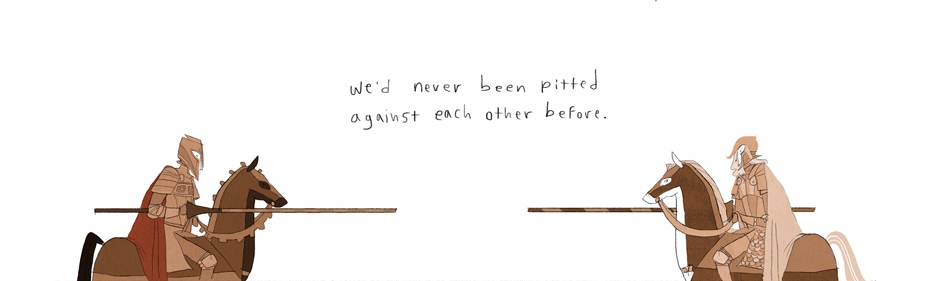 we'd never been pitted
against each other before.